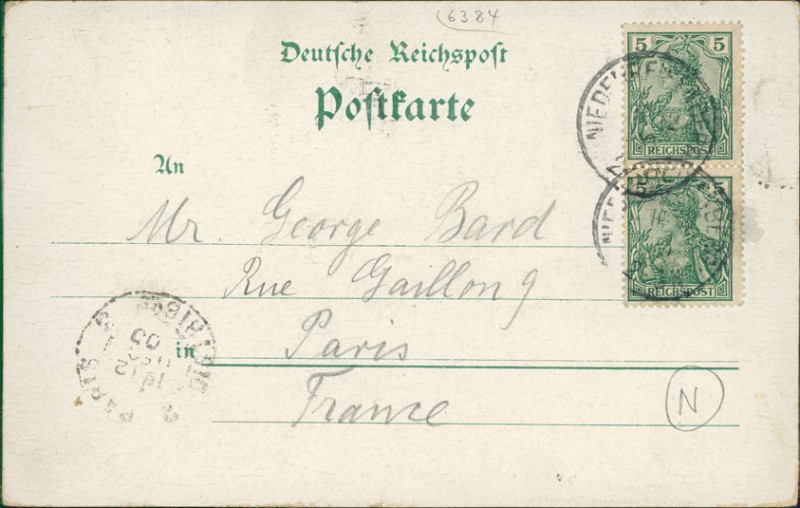 6384
Deutsche Reichspost
Postkarte
5 5
REICHSPOST
5 5
REICHSPOST
An
Mr. George Bard
Rue Gaillon 9
in Paris
France
PARIS
DISTRIB
N